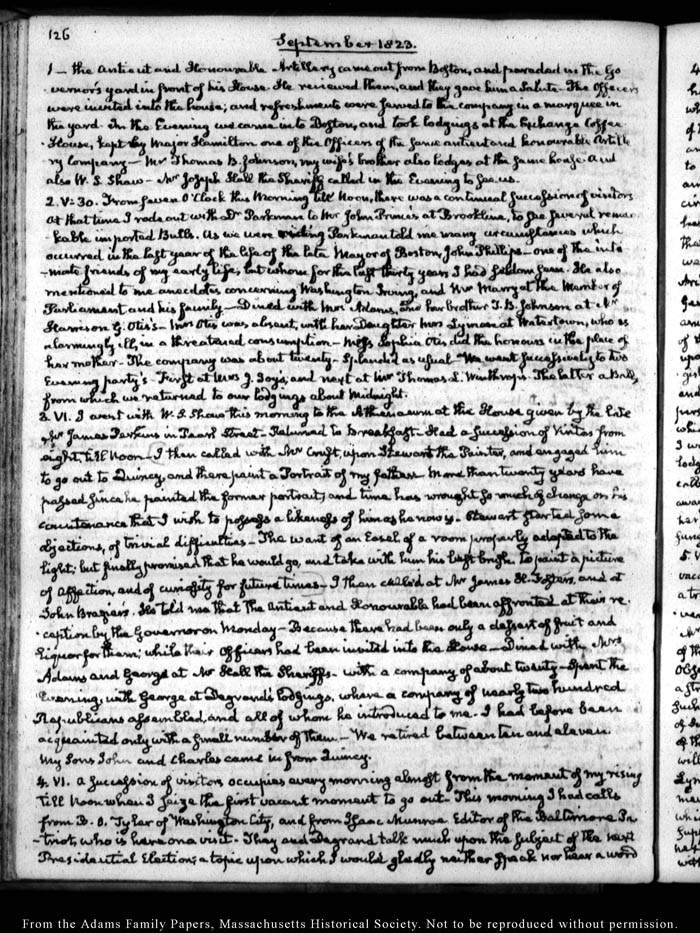 126
September 1823.
1 — the Antient and Honourable Artillery came out from Boston, and paraded in the Go
vernor's yard in front of his House. He reviewed them, and they gave him a Salute. The Officers
were invited into the house; and refreshments were served to the company in a marquee in
the yard. In the Evening we came into Boston, and took lodgings at the Exchange Coffee
House, kept by Major Hamilton one of the Officers of the same antient and honourable Artille
ry Company — Mr Thomas B. Johnson, my wife's brother also lodges at the same house. And
also W. S. Shaw — Mr Joseph Hall the Sheriff called in the Evening to see us.
2. V:30. From seven O'Clock this Morning till Noon, there was a continual succession of visitors
At that time I rode out with Dr Parkman to Mr John Prince's at Brookline, to see several remar
kable imported Bulls. As we were riding Parkman told me many circumstances which
occurred in the last year of the life of the late Mayor of Boston, John Phillips — one of the inti
mate friends of my early life, but whom for the last thirty years I had seldom seen. He also
mentioned to me anecdotes concerning Washington Irving, and Mr Manry at the Member of
Parliament and his family — Dined with Mrs Adams, and her brother T. B. Johnson at Mr
Harrison G. Otis's — Mrs Otis was absent, with her Daughter Mrs Lyman at Watertown, who is
alarmingly ill, in a threatened consumption — Miss Sophia Otis did the honours in the place of
her mother — The company was about twenty — Splendid as usual — We went successively to two
Evening party's — First at Mrs J. Joys; and next at Mr Thomas L. Winthrop's. The latter a Ball,
from which we returned to our lodgings about midnight.
3. VI. I went with W. S. Shaw this morning to the Athenaeum at the House given by the late
Mr James Perkins in Pearl Street — Returned to Breakfast. Had a succession of Visitors from
eight, till Noon — I then called with Mr Cruft, upon Stewart the Painter, and engaged him
to go out to Quincy, and there paint a Portrait of my father. More than twenty years have
passed since he painted the former portrait; and time has wrought so much of change on his
countenance that I wish to possess a likeness of him as he now is — Stewart started some
objections, of trivial difficulties — The want of an Easel of a room properly adapted to the
light; but finally promised that he would go, and take with him his best brush to paint a picture
of Affection, and of curiosity for future times — I then called at Mr James H. Foster's, and at
John Brazier's. He told me that the Antient and Honourable had been affronted at their re
ception by the Governor on Monday — Because there had been only a dessert of fruit and
liquor for them; while their Officers had been invited into the House — Dined with Mrs
Adams and George at Mr Hall the Sheriff's — with a company of about twenty — Spent the
Evening, with George at Degrand's lodgings, where a company of nearly two hundred
Republicans assembled, and all of whom he introduced to me — I had before been
acquainted only with a small number of them — We retired between ten and eleven.
My Sons John and Charles came in from Quincy.
4. VI. A succession of visitors occupies every morning almost from the moment of my rising
till Noon when I seize the first vacant moment to go out — This morning I had calls
from D. O. Tyler of Washington City, and from Isaac Munroe Editor of the Baltimore Pa
triot, who is here on a visit — They and Degrand talk much upon the subject of the next
Presidential Election; a topic upon which I would gladly neither speak nor hear a word
From the Adams Family Papers, Massachusetts Historical Society. Not to be reproduced without permission.